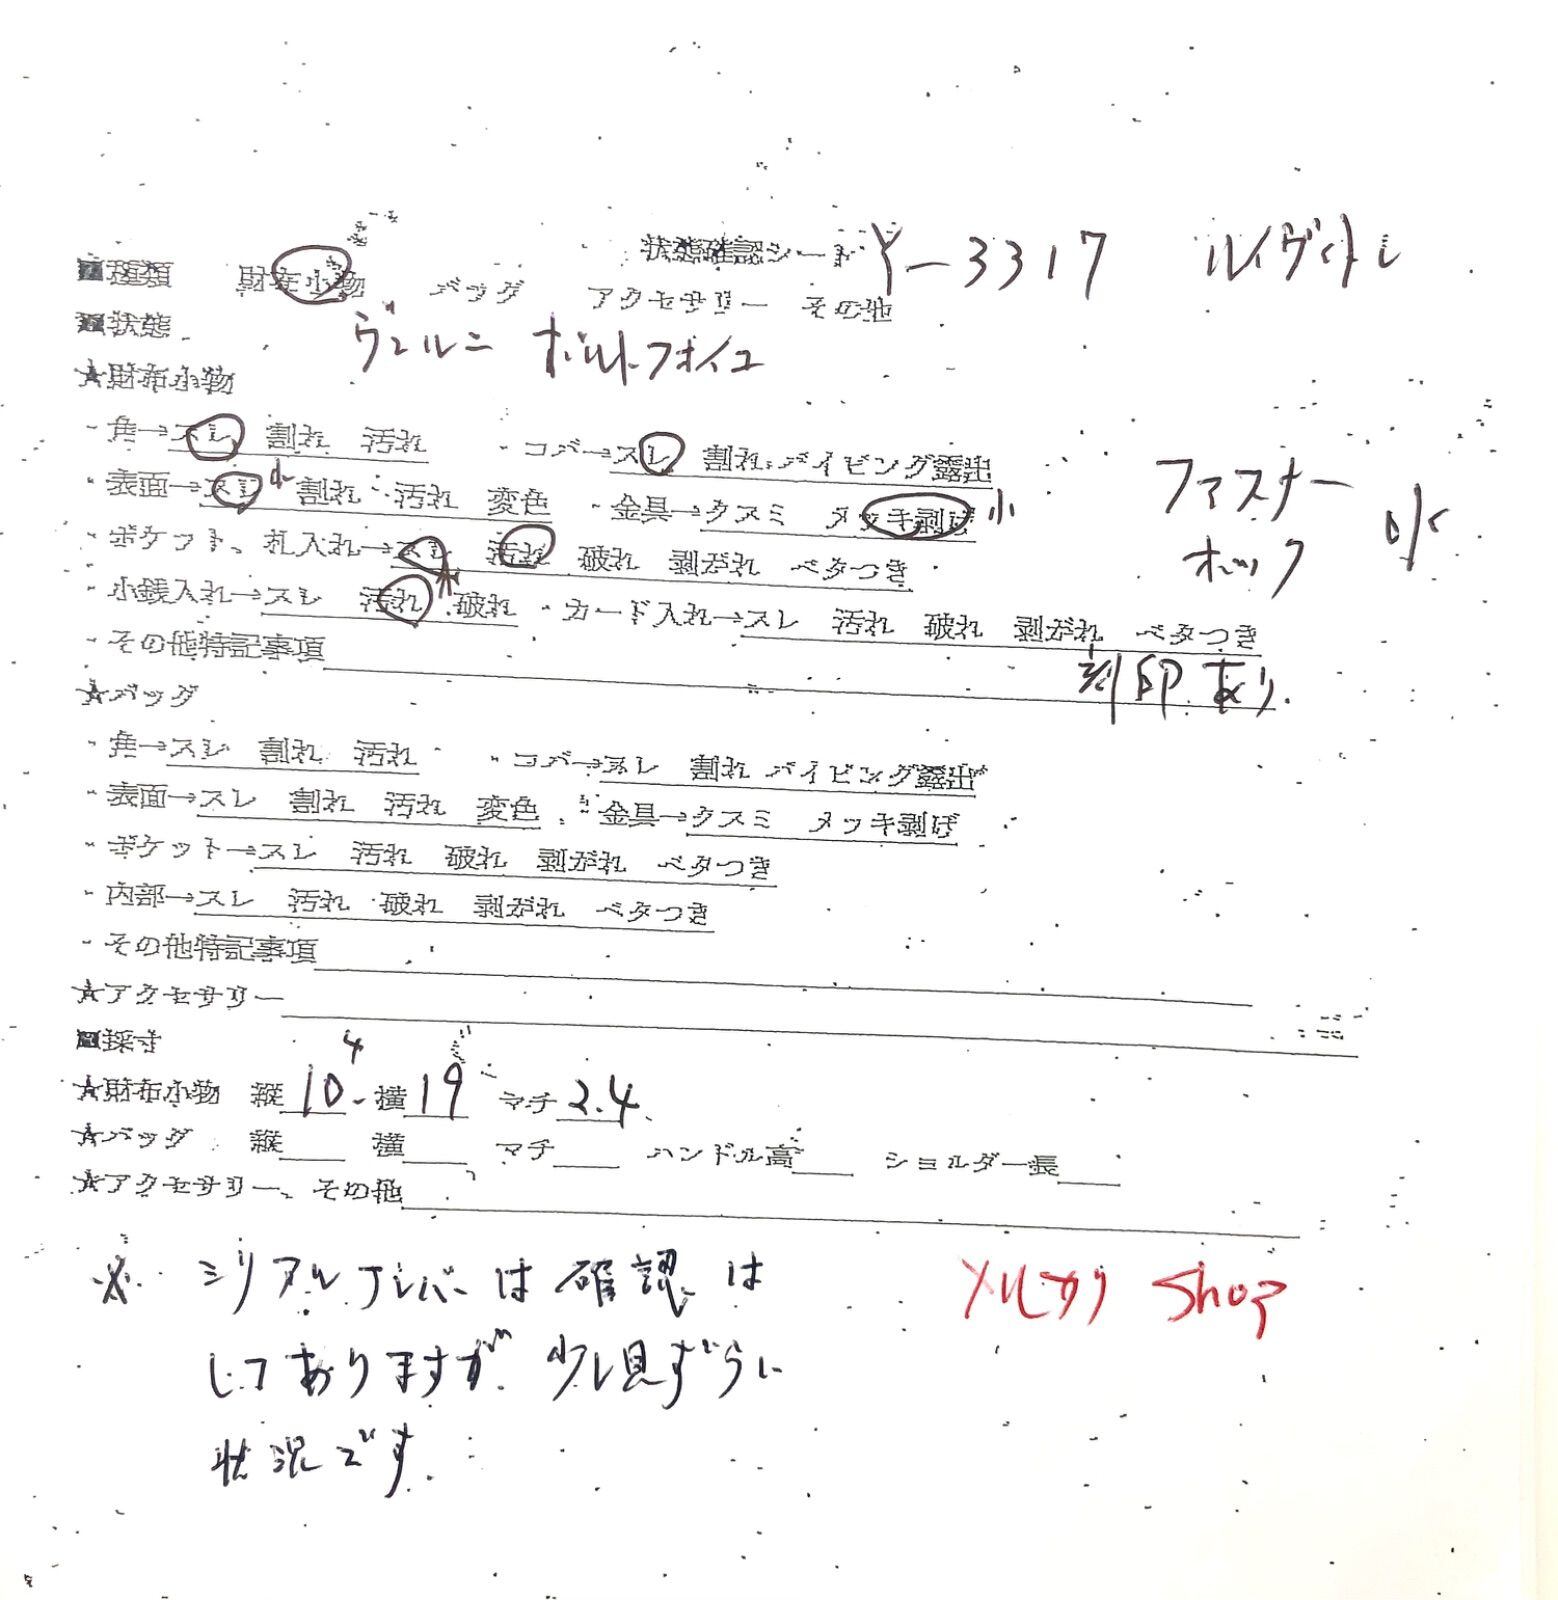 状態確認シート Y-3317 ルイヴィトン
■種類 財布小物 バッグ アクセサリー その他
■状態 ヴェルニ ポルトフォイユ
★財布小物
・角→スレ 割れ 汚れ ・コバ→スレ 割れ パイピング露出
・表面→スレ 小 割れ 汚れ 変色 ・金具→クスミ メッキ剥げ 小
ファスナー
ホック OK
・ポケット、札入れ→スレ 汚れ 破れ 剥がれ ベタつき
・小銭入れ→スレ 汚れ 破れ ・カード入れ→スレ 汚れ 破れ 剥がれ ベタつき
・その他特記事項 刻印あり
★バッグ
・角→スレ 割れ 汚れ ・コバ→スレ 割れ パイピング露出
・表面→スレ 割れ 汚れ 変色 ・金具→クスミ メッキ剥げ
・ポケット→スレ 汚れ 破れ 剥がれ ベタつき
・内部→スレ 汚れ 破れ 剥がれ ベタつき
・その他特記事項
★アクセサリー
■採寸
★財布小物 縦 10.4 横 19 マチ 2.4
★バッグ 縦 横 マチ ハンドル高 ショルダー長
★アクセサリー、その他
※ シリアルナンバーは確認は
してありますが 少し見ずらい
状況です.
メルカリ Shop